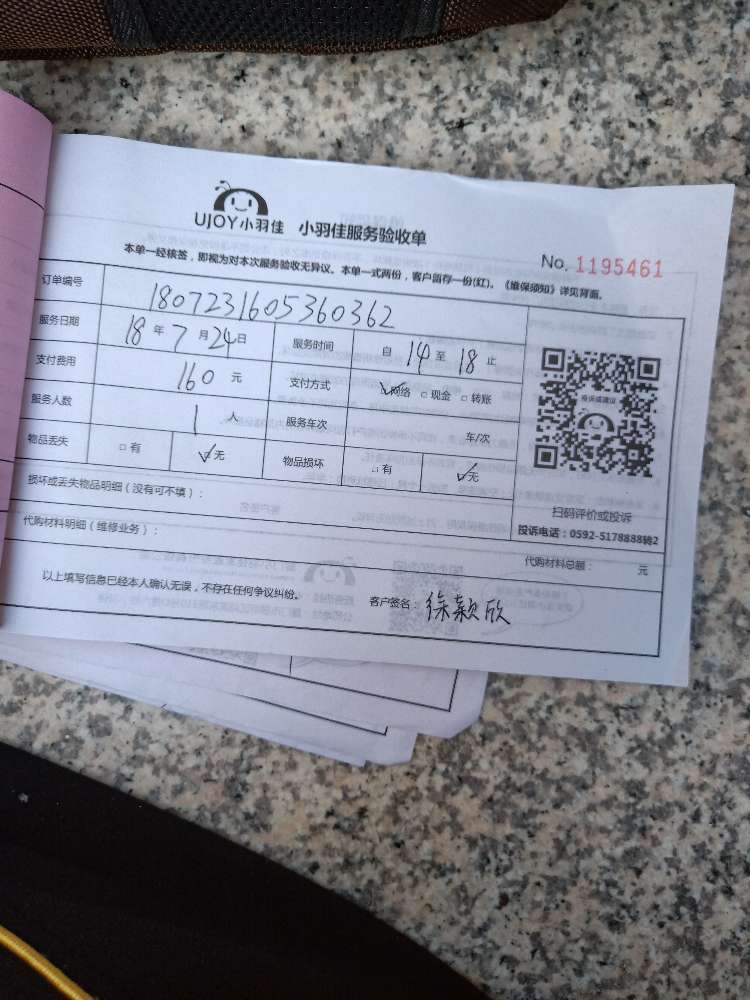 UJOY小羽佳 小羽佳服务验收单
No. 1195461
本单一经核签，即视为对本次服务验收无异议。本单一式两份，客户留存一份(红)。《维保须知》详见背面。
订单编号 1807231605360362
服务日期 18年7月24日 服务时间 自14至18止
支付费用 160元 支付方式 ☑网络 □现金 □转账
服务人数 1人 服务车次 车/次
物品丢失 □有 ☑无 物品损坏 □有 ☑无
投诉或建议
扫码评价或投诉
投诉电话：0592-5178888转2
损坏或丢失物品明细（没有可不填）：
代购材料明细（维修业务）： 代购材料总额： 元
以上填写信息已经本人确认无误，不存在任何争议纠纷。 客户签名：徐颖欣